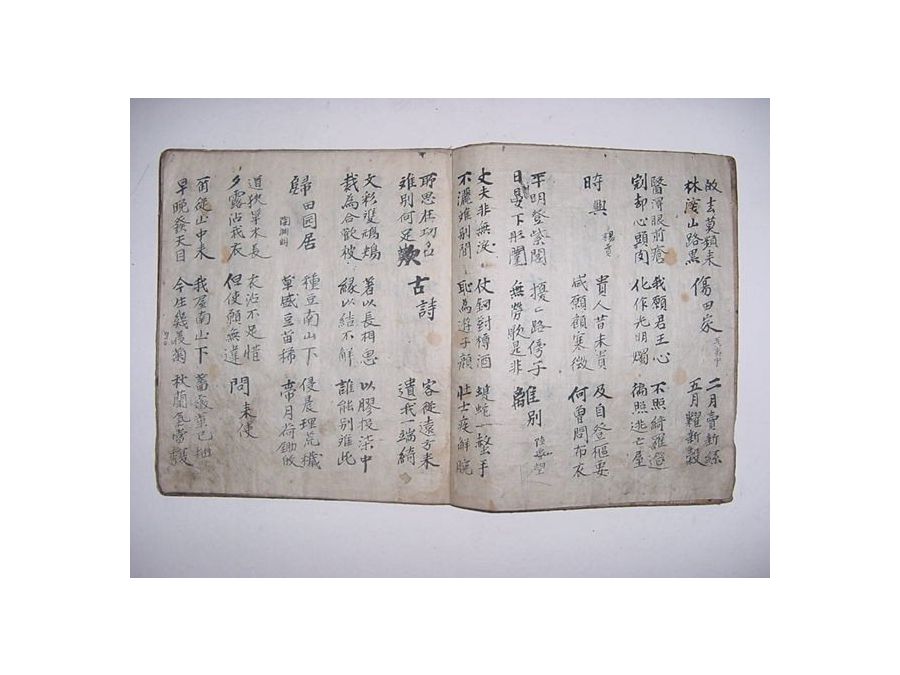 故去莫頻来
林深山路黑
傷田家 聶夷中
二月賣新絲
五月糶新穀
醫得眼前瘡 我願君王心 不照綺羅筵
剜却心頭肉 化作光明燭 徧照逃亡屋
時興 楊賁
貴人昔未貴 及自登樞要
咸願顧寒微 何曾問布衣
平明登紫閣 擾〻路傍子
日晏下彤闈 無勞歌是非
離別 陸龜蒙
丈夫非無淚 仗釰對樽酒 蝮蛇一螫手
不灑離別間 恥為游子顔 壯士疾解腕
所思在功名
離別何足歎
古詩
客從遠方来
遺我一端綺
文彩雙鴛鴦 著以長相思 以膠投柒中
裁為合歡被 緣以結不解 誰能別離此
歸田园居 陶渊明
種豆南山下 侵晨理荒穢
草盛豆苗稀 帶月荷鋤歸
道狹草木長 衣沾不足惜
夕露沾我衣 但使願無違
問来使
甭從山中来 我屋南山下 薔薇葉已抽
早晚發天目 今生幾叢菊 秋蘭氣當馥